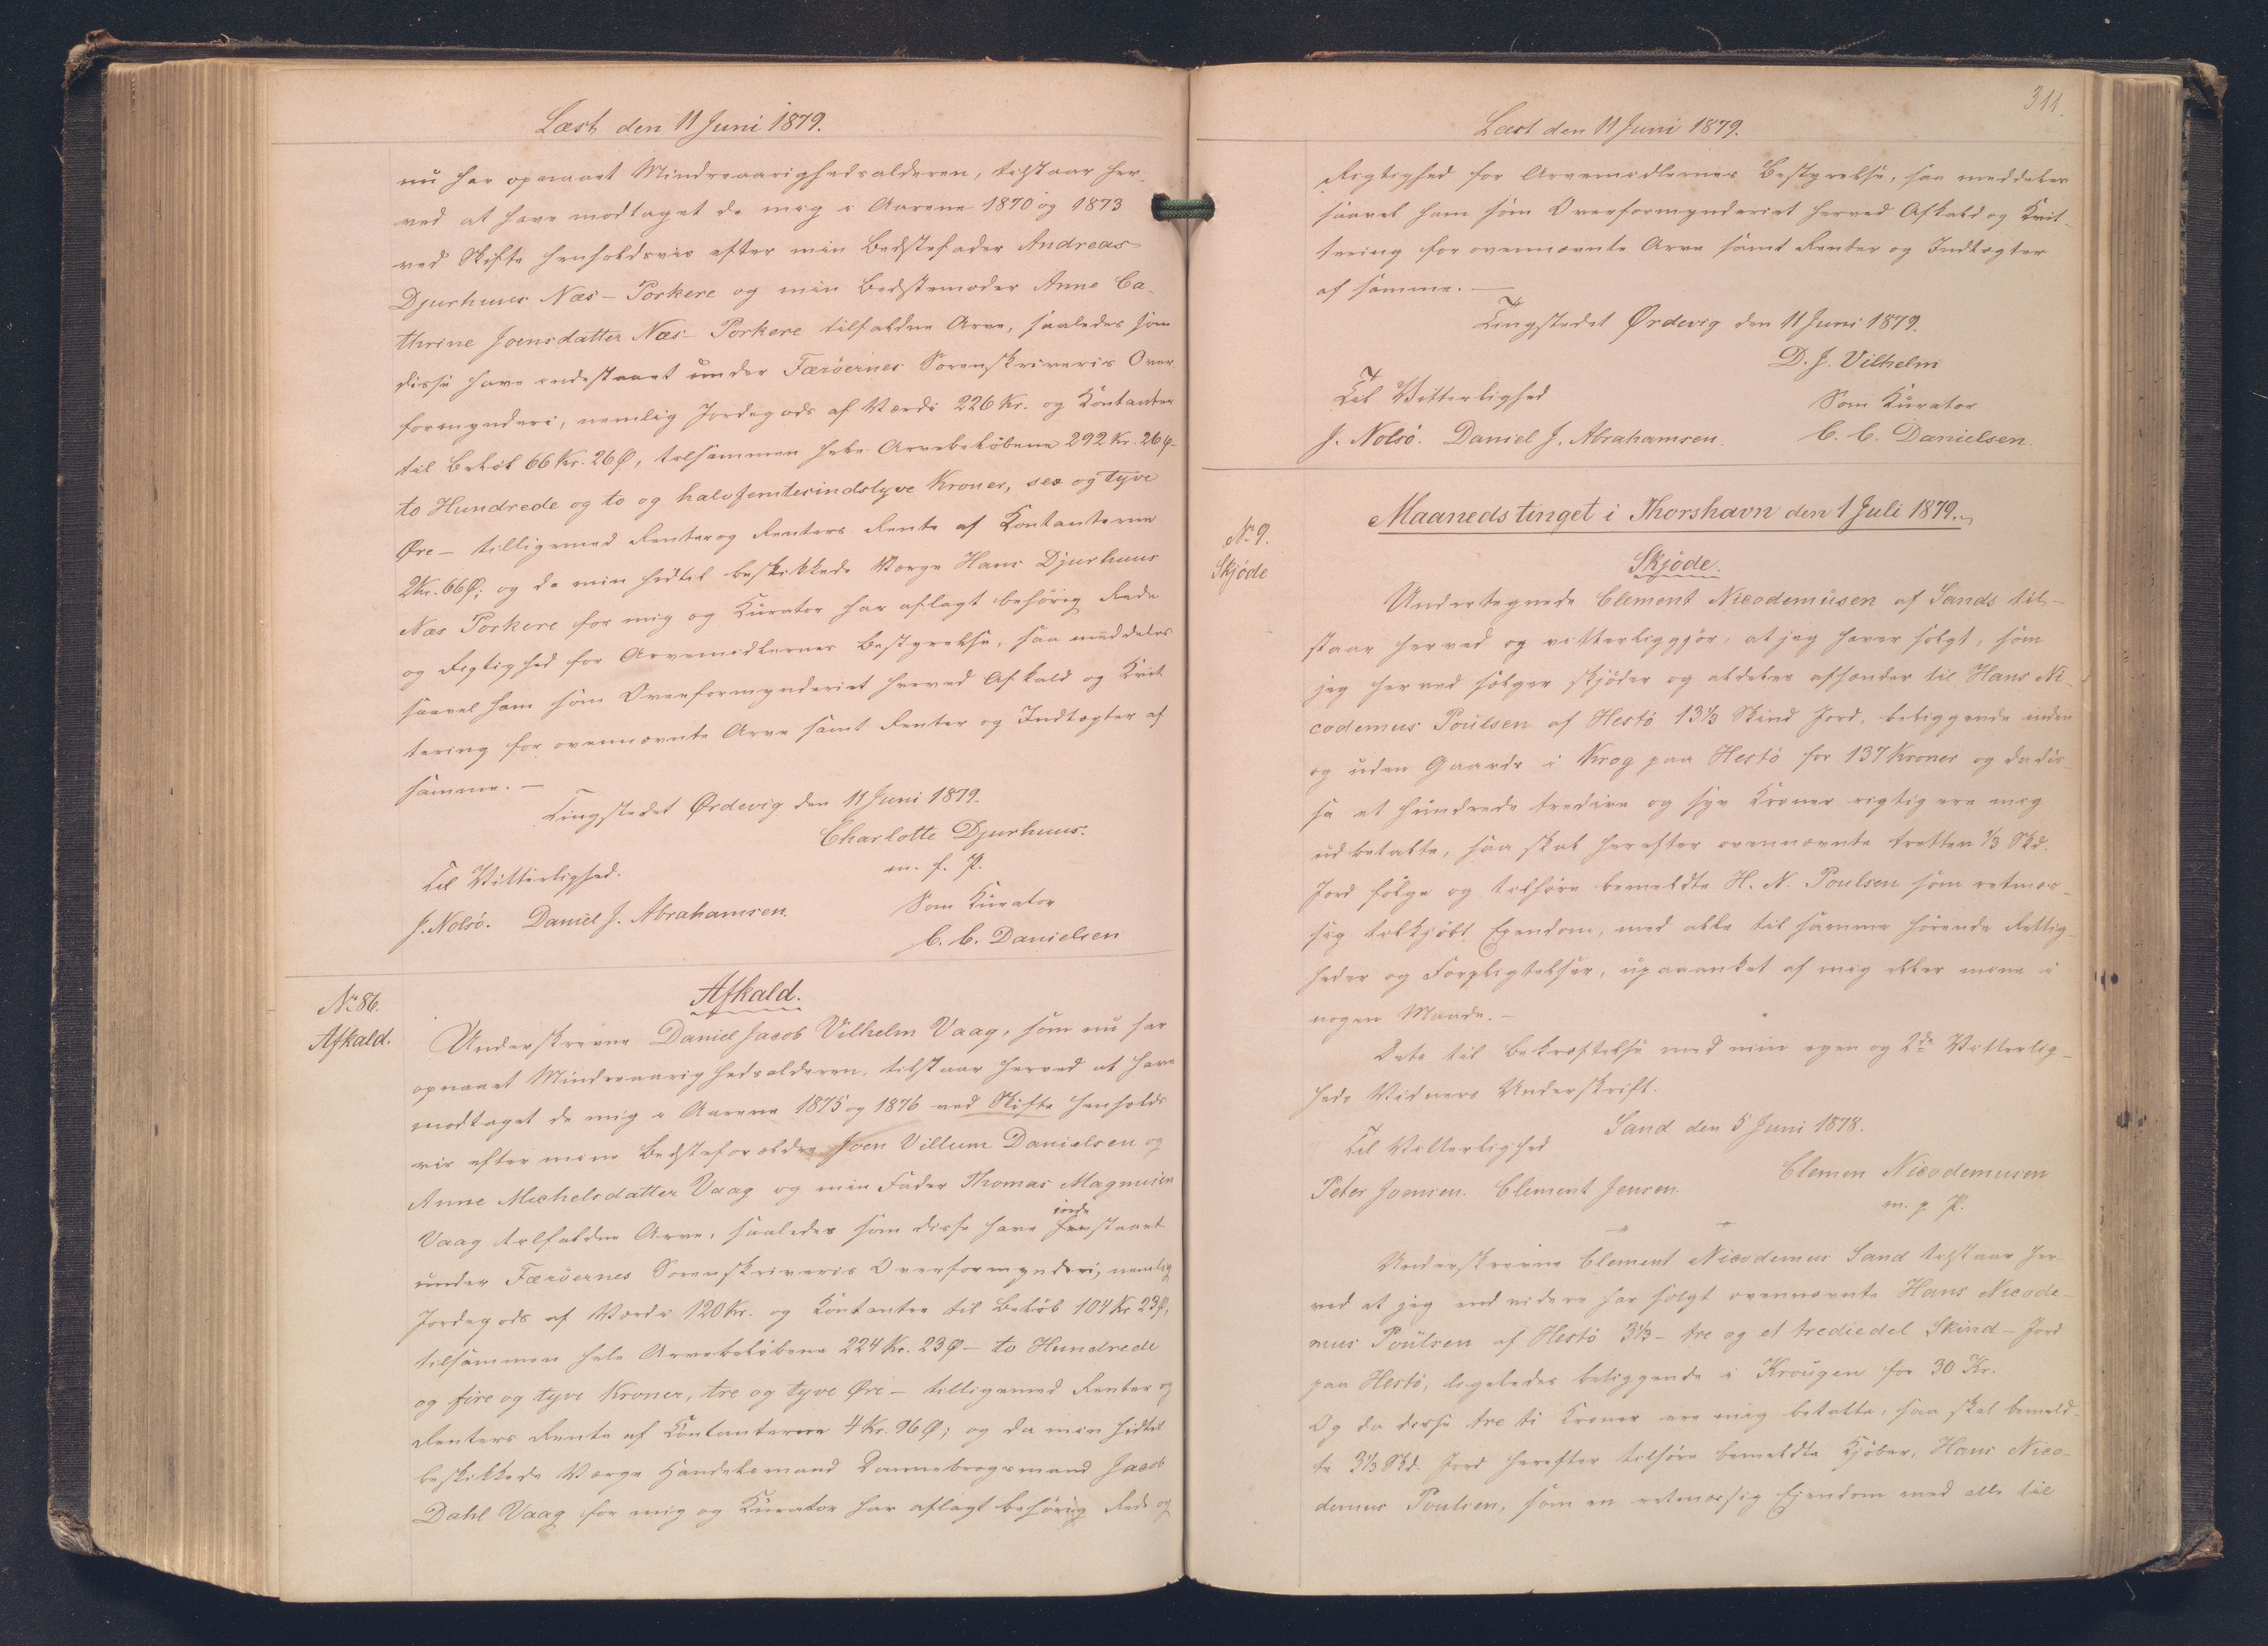 Læst den 11 Juni 1879.
nu har opnaaet Mindreaarighedsalderen, tilstaar her-
ved at have modtaget de mig i Aarene 1870 og 1873
ved Skifte henholdsvis efter min Bedstefader Andreas
Djurhuus Næs-Porkere og min Bedstemoder Anne Ca-
thrine Joensdatter Næs-Porkere tilfaldne Arve, saaledes som
disse have indestaaet under Færöernes Sorenskriveris Over
formynderi, nemlig Jordegods af Værdi 226 Kr. og Kontanter
til Beløb 66 Kr. 26 Ø, tilsammen hele Arvebeløbene 292 Kr. 26 Ø-
to Hundrede og to og halvfemtesindstyve Kroner, sex og tyve
Øre - tilligemed Renter og Renters Rente af Kontanterne
2Kr. 66Ø; og da min hidtil beskikkede Værge Hans Djurhuus
Næs Porkere for mig og Kurator har aflagt behörig Rede
og Rigtighed for Arvemidlernes Bestyrelse, saa meddeles
saavel ham som Overformynderiet herved Afkald og Kvit
tering for ovennævnte Arve samt Renter og Indtægter af
samme. -
Tingstedet Ørdevig den 11 Juni 1879.
Charlotte Djurhuus.
m. f. P.
Til Vitterlighed.
Som Kurator
J. Nolsö. Daniel J. Abrahamsen.
C. C. Danielsen
No 86.
Afkald.
Afkald.
Underskrevne Daniel Jacob Vilhelm Vaag, som nu har
opnaaet Mindreaarighedsalderen, tilstaar herved at have
modtaget de mig i Aarene 1875 og 1876 ved Skifte henholds
vis efter mine Bedsteforældre Joen Villum Danielsen og
Anne Michelsdatter Vaag og min Fader Thomas Magnusen
Vaag tilfaldne Arve, saaledes som disse have inde staaet
under Færöernes Sorenskriveris Overformynderi, nemlig
Jordegods af Værdi 120 Kr. og Kontanter til Beløb 104 Kr 23Ø,
tilsammen hele Arvebeløbene 224 Kr. 23 Ø - to Hundrede
og fire og tyve Kroner, tre og tyve Øre - tilligemed Renter og
Renters Rente af Kontanterne 4 Kr. 96 Ø; og da min hidtil
beskikkede Værge Handelsmand Dannebrogsmand Jacob
Dahl Vaag for mig og Kurator har aflagt behörig Rede og
311.
Læst den 11 Juni 1879.
Rigtighed for Arvemidlernes Bestyrelse, saa meddeles
saavel ham som Overformynderiet herved Afkald og Kvit-
tering for ovennævnte Arve samt Renter og Indtægter
af samme. -
Tingstedet Ørdevig den 11 Juni 1879.
D. J. Vilhelm
Til Vitterlighed
Som Kurator
J. Nolsö. Daniel J. Abrahamsen.
C. C. Danielsen.
Maanedstinget i Thorshavn den 1 Juli 1879.
No 9.
Skjöde
Skjöde.
Undertegnede Clement Nicodemusen af Sands til-
staar herved og vitterliggjör, at jeg haver solgt, som
jeg herved sælger skjöder og aldeles afhænder til Hans Ni-
codemus Poulsen af Hestö 13 1/3 Skind Jord, beliggende inden
og uden Gaards i Krog paa Hestö for 137 Kroner og da dis-
se et hundrede tredive og syv Kroner rigtig ere mig
ud betalte, saa skal herefter ovennævnte tretten 1/3 Skd.
Jord følge og tilhöre bemeldte H. N. Poulsen som retmæs-
sig tilkjøbt Ejendom, med alle til samme hörende Rettig-
heder og Forpligtelser, upaaanket af mig eller mine i
nogen Maade. -
Dets til Bekræftelse med min egen og 2de Vitterlig-
heds Vidners Underskrift.
Sand den 5 Juni 1878.
Til Vitterlighed
Clemen Nicodemusen
Peter Joensen. Clement Jensen.
m. p. P.
Underskrevne Clement Nicodemus Sand tilstaar her
ved at jeg end videre har solgt ovennævnte Hans Nicode-
mus Poulsen af Hestö 3 1/3 - tre og et trediedel Skind - Jord
paa Hestö, ligeledes beliggende i Krougen for 30 Kr.
Og da disse tre ti Kroner ere mig betalte, saa skal bemeld-
te 3 1/3 Skd. Jord herefter tilhöre bemeldte Kjöber, Hans Nico-
demus Poulsen, som en retmæssig Ejendom med alle til